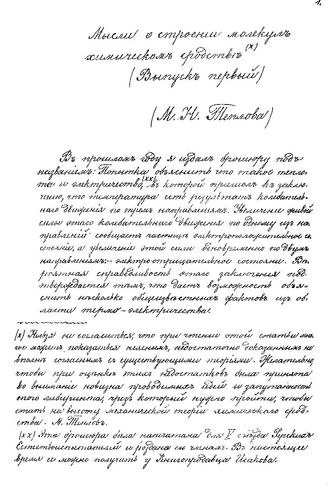 1.
Мысли о строеніи молекулъ
химическомъ сродствѣ (x)
(Выпускъ первый)
(М. Н. Теплова)
Въ прошломъ году я издалъ брошюру подъ
названіемъ: Попытка объяснить что такое тепло-
та и электричество, (xx) въ которой пришолъ къ заклю-
ченію, что температура есть результатъ колебатель-
наго движенія по тремъ направленіямъ. Увеличеніе живой
силы этого колебательнаго движенія по одному изъ на-
правленій сообщаетъ частицѣ электроположительное со-
стояніе, а увеличеніе этой силы одновременно по двумъ
направленіямъ — электроотрицательное состояніе. Вѣ-
роятная справедливость этого заключенія под-
тверждается тѣмъ, что даетъ возможность объя-
снить нѣсколько общеизвѣстныхъ фактовъ изъ об-
ласти термо-электричества:
(x) Нельзя не согласиться, что при чтеніи этой статьи мно-
гое можетъ показаться неяснымъ, недостаточно доказаннымъ не
вполнѣ согласнымъ съ существующими теоріями. Желательно,
чтобы при оцѣнкѣ этихъ недостатковъ была принята
во вниманіе новизна проводимыхъ идей и запутанность
того лабиринта, чрезъ который нужно пройти, чтобы
стать на высоту механической теоріи химическаго срод-
ства. М. Тепловъ.
(xx) Эта брошюра была напечатана для V съѣзда Русскихъ
Естествоиспытателей и роздана его членамъ. Въ настоящее
время ее можно получить у Книгопродавца Исакова.